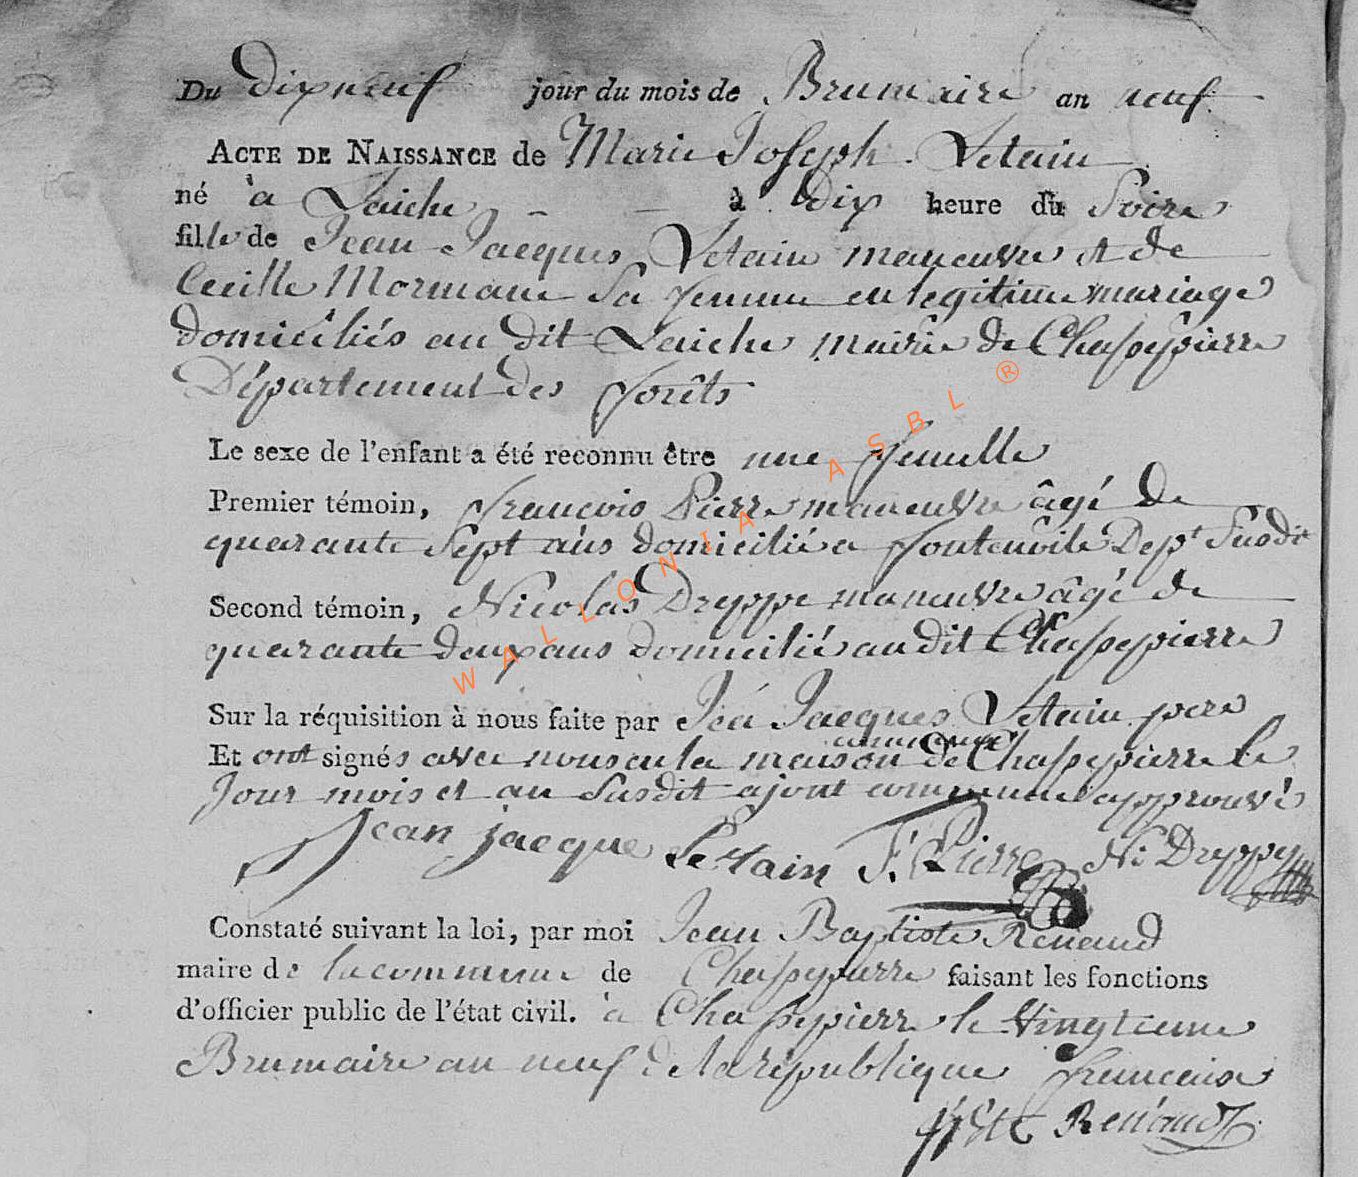 Du dixneuf jour du mois de Brumaire an neuf
ACTE DE NAISSANCE de Marie Joseph Letain
né à Laiche - - à dix heure du Soire
fille de Jean Jacques Letain maneuvre et de
Cecille Mormane Sa femme en legitime mariage
domiciliés au dit Laiche mairie de Chassepierre
Département des forêts
Le sexe de l'enfant a été reconnu être une femelle
Premier témoin, francois Pierre maneuvre âgé de
quarante Sept ans domicilié a fontenoile Dept Susdit
Second témoin, Nicolas Dreppe maneuvre âgé de
quarante deux ans domicilié audit Chassepierre
Sur la réquisition à nous faite par Jea Jacques Letain pere
commune
Et ont signés avec nous en la maison de Chassepierre le
Jour mois et an Susdit ajout commune approuvé
jean jacque Letain F. Pierre Ni Dreppe
Constaté suivant la loi, par moi Jean Baptiste Renaud
maire de la commune de Chassepierre faisant les fonctions
d'officier public de l'état civil. à Chassepierre le Vingtieme
Brumaire an neuf de la république francaise
Renaud
WALLONIA ASBL ®